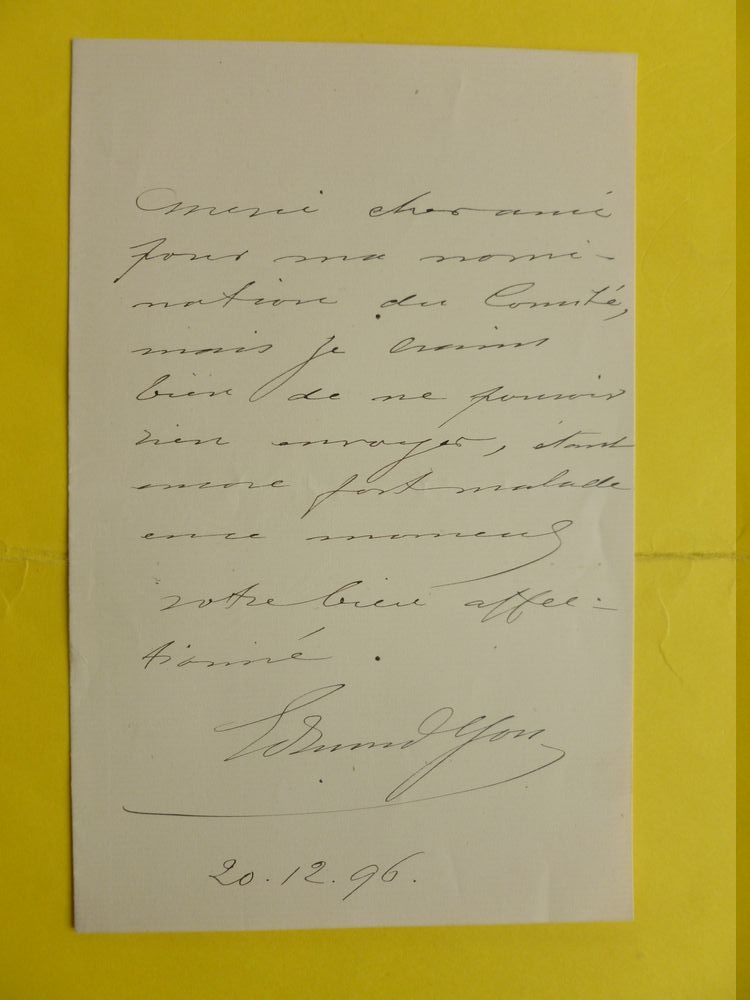 Merci cher ami
pour ma nomi-
nation du Comité,
mais je crains
bien de ne pouvoir
rien envoyer, étant
encore fort malade
en ce moment
votre bien affec-
tionné.
Edmond Yon
20.12.96.